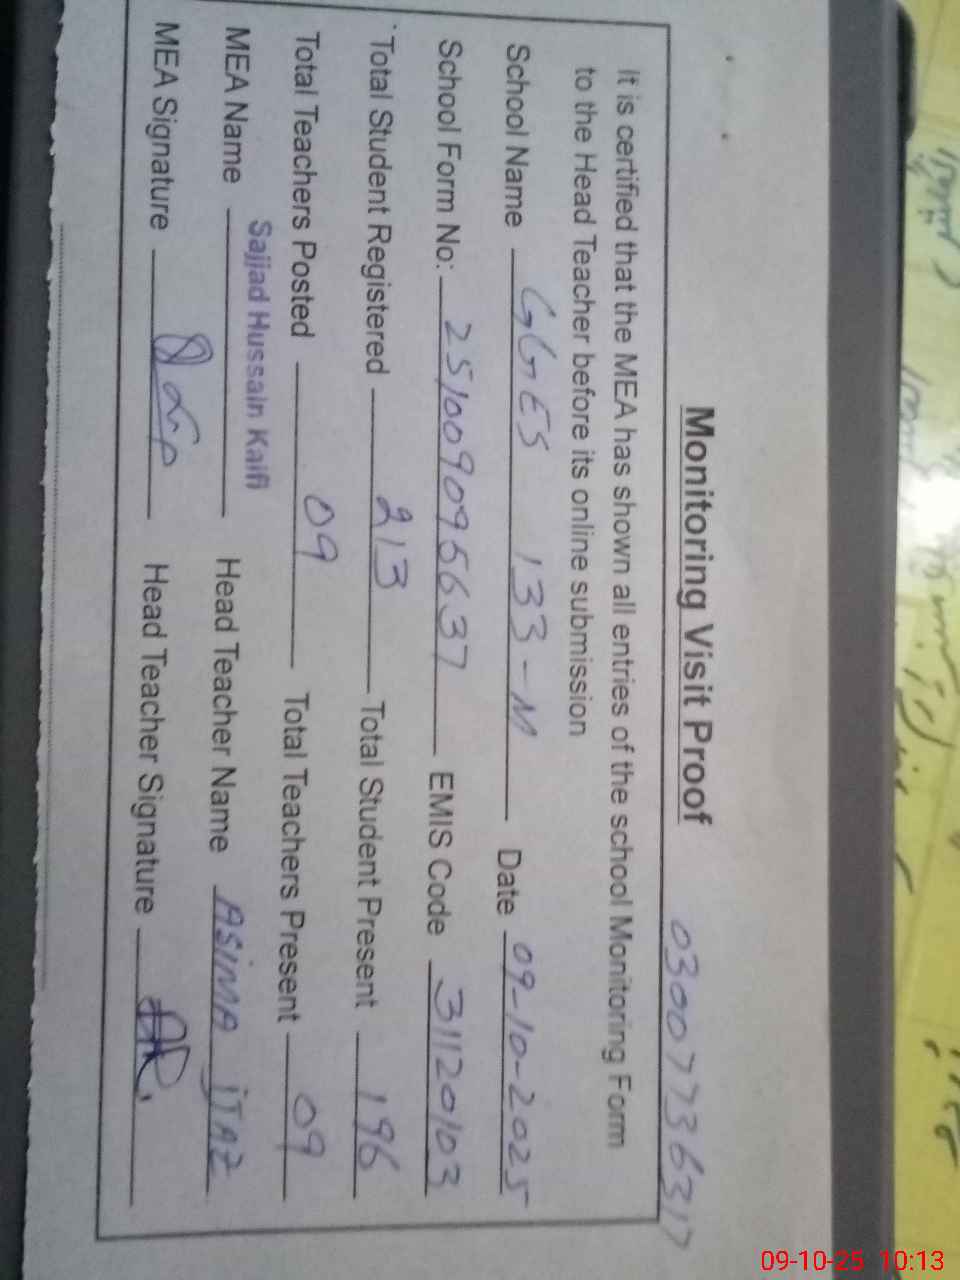 Monitoring Visit Proof 03007736317
It is certified that the MEA has shown all entries of the school Monitoring Form
to the Head Teacher before its online submission
School Name GGES 133-M Date 09-10-2025
School Form No: 2510090956637 EMIS Code 31120103
Total Student Registered 213 Total Student Present 196
Total Teachers Posted 09 Total Teachers Present 09
Sajjad Hussain Kaifi
MEA Name Head Teacher Name ASIMA
MEA Signature Head Teacher Signature
09-10-25 10:13